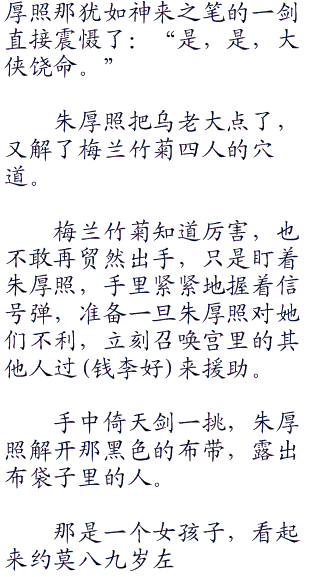 厚照那犹如神来之笔的一剑
直接震慑了：“是，是，大
侠饶命。”
朱厚照把乌老大点了，
又解了梅兰竹菊四人的穴
道。
梅兰竹菊知道厉害，也
不敢再贸然出手，只是盯着
朱厚照，手里紧紧地握着信
号弹，准备一旦朱厚照对她
们不利，立刻召唤宫里的其
他人过(钱李好)来援助。
手中倚天剑一挑，朱厚
照解开那黑色的布带，露出
布袋子里的人。
那是一个女孩子，看起
来约莫八九岁左